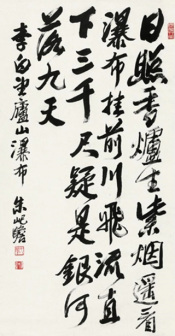 日照香爐生紫烟遥看
瀑布挂前川飛流直
下三千尺疑是銀河
落九天
李白望廬山瀑布 朱屺瞻